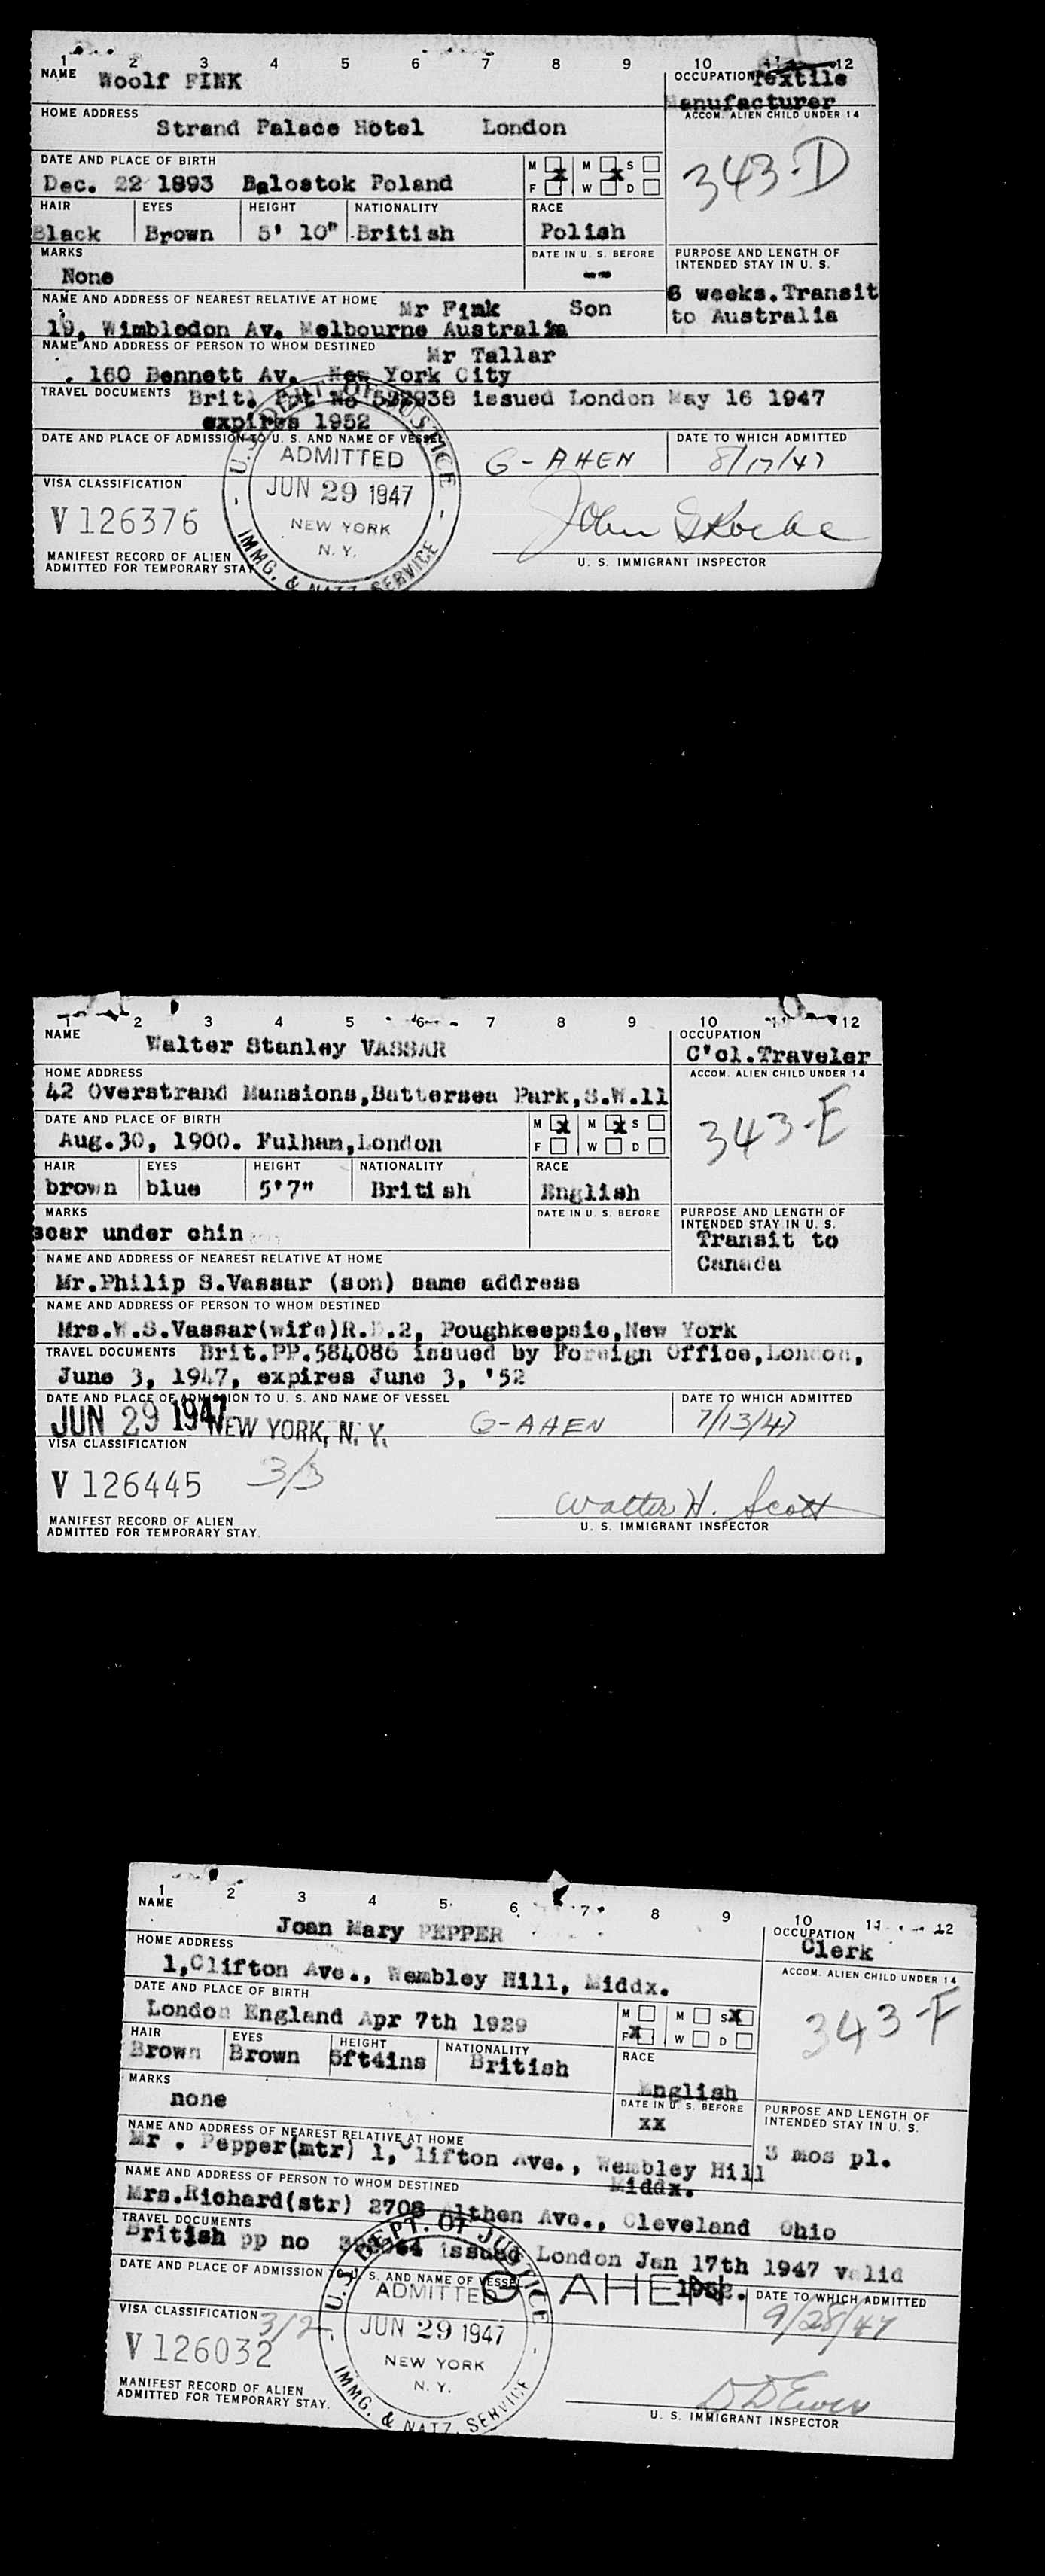 1 2 3 4 5 6 7 8 9 10 11 12
NAME Woolf FINK OCCUPATION Textile
Manufacturer
HOME ADDRESS ACCOM. ALIEN CHILD UNDER 14
Strand Palace Hotel London
343-D
DATE AND PLACE OF BIRTH M M S
Dec. 22 1893 Belostok Poland F W D
HAIR EYES HEIGHT NATIONALITY RACE
Black Brown 5' 10" British Polish
MARKS DATE IN U. S. BEFORE PURPOSE AND LENGTH OF
INTENDED STAY IN U. S.
None --
6 weeks.Transit
to Australia
NAME AND ADDRESS OF NEAREST RELATIVE AT HOME Mr Fink Son
19, Wimbledon Av. Melbourne Australia
NAME AND ADDRESS OF PERSON TO WHOM DESTINED Mr Tallar
160 Bennett Av. New York City
TRAVEL DOCUMENTS Brit. No issued London May 16 1947
expires 1952
DATE AND PLACE OF ADMISSION TO U. S. AND NAME OF VESSEL DATE TO WHICH ADMITTED
G-AHEN 8/17/47
U.S. DEPT. OF JUSTICE
ADMITTED
JUN 29 1947
NEW YORK
N. Y.
IMMG. & NATZ. SERVICE
VISA CLASSIFICATION
V 126376
John
MANIFEST RECORD OF ALIEN
ADMITTED FOR TEMPORARY STAY.
U. S. IMMIGRANT INSPECTOR
1 2 3 4 5 6 7 8 9 10 11 12
NAME Walter Stanley VASSAR OCCUPATION
C'ol.Traveler
HOME ADDRESS ACCOM. ALIEN CHILD UNDER 14
42 Overstrand Mansions,Battersea Park,S.W.11
343-E
DATE AND PLACE OF BIRTH M M S
Aug.30, 1900. Fulham,London F W D
HAIR EYES HEIGHT NATIONALITY RACE
brown blue 5'7" British English
MARKS DATE IN U. S. BEFORE PURPOSE AND LENGTH OF
INTENDED STAY IN U. S.
scar under chin
Transit to
Canada
NAME AND ADDRESS OF NEAREST RELATIVE AT HOME
Mr.Philip S.Vassar (son) same address
NAME AND ADDRESS OF PERSON TO WHOM DESTINED
Mrs.W.S.Vassar(wife)R.D.2, Poughkeepsie,New York
TRAVEL DOCUMENTS Brit.PP.584086 issued by Foreign Office,London,
June 3, 1947, expires June 3, '52
DATE AND PLACE OF ADMISSION TO U. S. AND NAME OF VESSEL DATE TO WHICH ADMITTED
JUN 29 1947 NEW YORK, N. Y. G-AHEN 7/13/47
VISA CLASSIFICATION
V 126445 3/3
Walter H. Scott
MANIFEST RECORD OF ALIEN
ADMITTED FOR TEMPORARY STAY.
U. S. IMMIGRANT INSPECTOR
1 2 3 4 5 6 7 8 9 10 11 12
NAME Joan Mary PEPPER OCCUPATION
Clerk
HOME ADDRESS ACCOM. ALIEN CHILD UNDER 14
1,Clifton Ave., Wembley Hill, Middx.
343-F
DATE AND PLACE OF BIRTH M M S
London England Apr 7th 1929 F W D
HAIR EYES HEIGHT NATIONALITY RACE
Brown Brown 5ft4ins British English
MARKS DATE IN U. S. BEFORE PURPOSE AND LENGTH OF
INTENDED STAY IN U. S.
none xx
3 mos pl.
NAME AND ADDRESS OF NEAREST RELATIVE AT HOME
Mr . Pepper(mtr) 1, Clifton Ave., Wembley Hill
Middx.
NAME AND ADDRESS OF PERSON TO WHOM DESTINED
Mrs.Richard(str) 2708 Althen Ave., Cleveland Ohio
TRAVEL DOCUMENTS
British pp no issued London Jan 17th 1947 valid
1952.
DATE AND PLACE OF ADMISSION TO U. S. AND NAME OF VESSEL DATE TO WHICH ADMITTED
G AHEN 9/28/47
U.S. DEPT. OF JUSTICE
ADMITTED
JUN 29 1947
NEW YORK
N. Y.
IMMG. & NATZ. SERVICE
VISA CLASSIFICATION 3/2
V 126032
MANIFEST RECORD OF ALIEN
ADMITTED FOR TEMPORARY STAY.
U. S. IMMIGRANT INSPECTOR